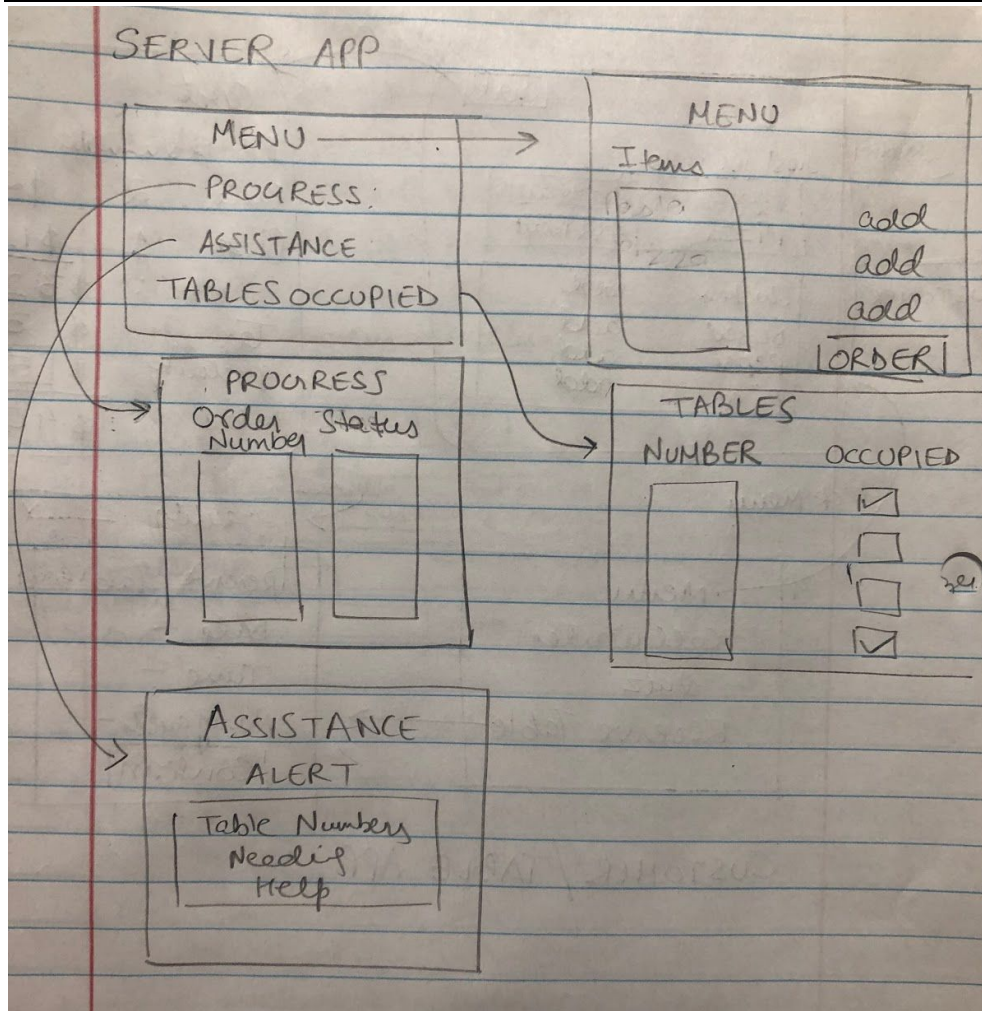 SERVER APP
MENU
PROGRESS:
ASSISTANCE
TABLES OCCUPIED
MENU
Items
add
add
add
ORDER
PROGRESS
Order Status
Number
TABLES
NUMBER OCCUPIED
ASSISTANCE
ALERT
Table Numbers
Needig
Help